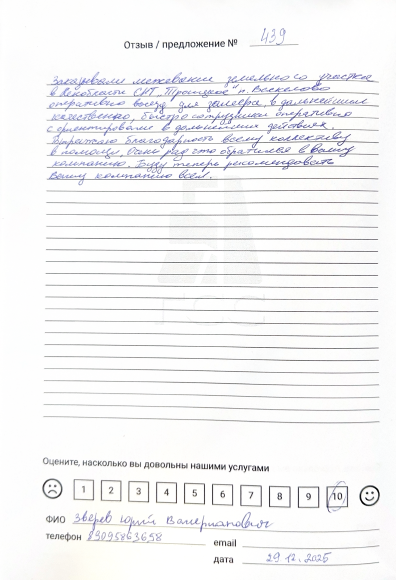 Отзыв / предложение № 439
Заказывали межевание земельного участка
в Ленобласти СНТ "Троицкое" п. Васкелово
оперативно выезд для замера, в дальнейшем
качественно, быстро сотрудники оперативно
с ориентировали в дальнейших действиях.
Выражаю благодарность всему коллективу
в помощи, Очень рад что обратился в Вашу
компанию. Буду теперь рекомендовать
Вашу компанию всем.
Оцените, насколько вы довольны нашими услугами
1 2 3 4 5 6 7 8 9 10
ФИО Зверев Юрий Валерианович
телефон 89095863658 email
дата 29.12.2025